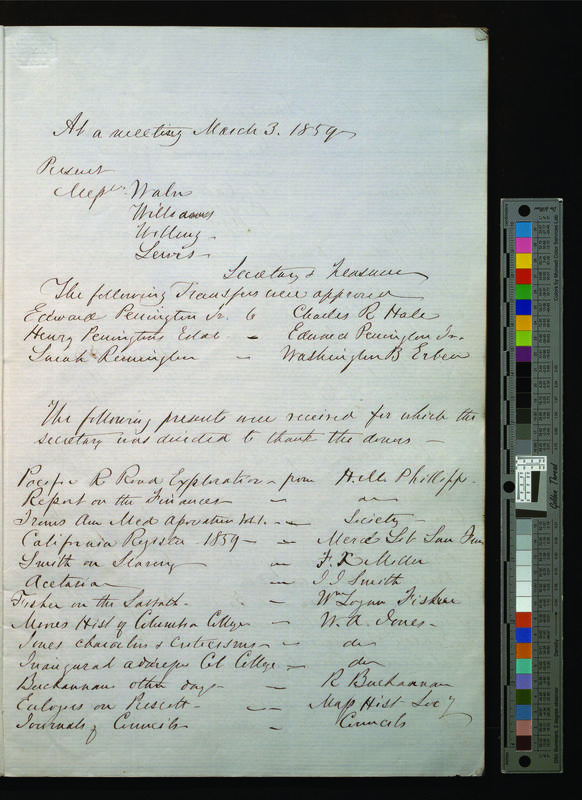 At a meeting March 3. 1859
Present
Messrs. Waln
Williams
Willing
Lewis
Secretary & Treasurer
The following Transfers were approved
Edward Penington Jr. to Charles R Hale
Henry Peningtons Estate - Edward Penington Jr.
Sarah Pennington - Washington B Erben
The following presents were received for which the
secretary was directed to thank the donors -
Pacific R Road Exploration - from H. M. Phillipps.
Report on the Finances - do
Trans Am Med Association Vol. - Society
California Register 1859 - Merc Lib San Fran
Smith on Slavery - F. X Miller
Acetaria - J J Smith
Fisher on the Sabbath - Wm Logan Fisher
Moores Hist of Columbia College - W. A. Jones -
Jones characters & Criticisms - do
Inaugural addresses Col College - do
Buchannans other days - R Buchannan
Eulogies on Prescott - Mass Hist Socy
Journals of Councils - Councils